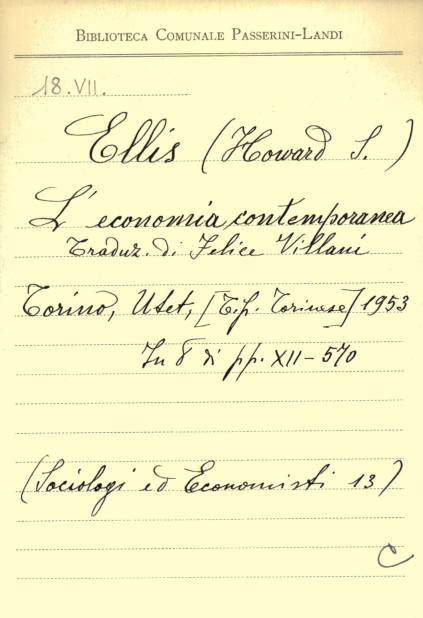 BIBLIOTECA COMUNALE PASSERINI-LANDI
18.VII.
Ellis (Howard S.)
L'economia contemporanea
Traduz. di Felice Villani
Torino, Utet, [Tip. Torinese] 1953
In 8 di pp. XII-570
(Sociologi ed Economisti 13)
C